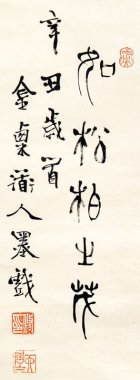 如松柏之茂
辛丑歲首
金粟道人墨戲